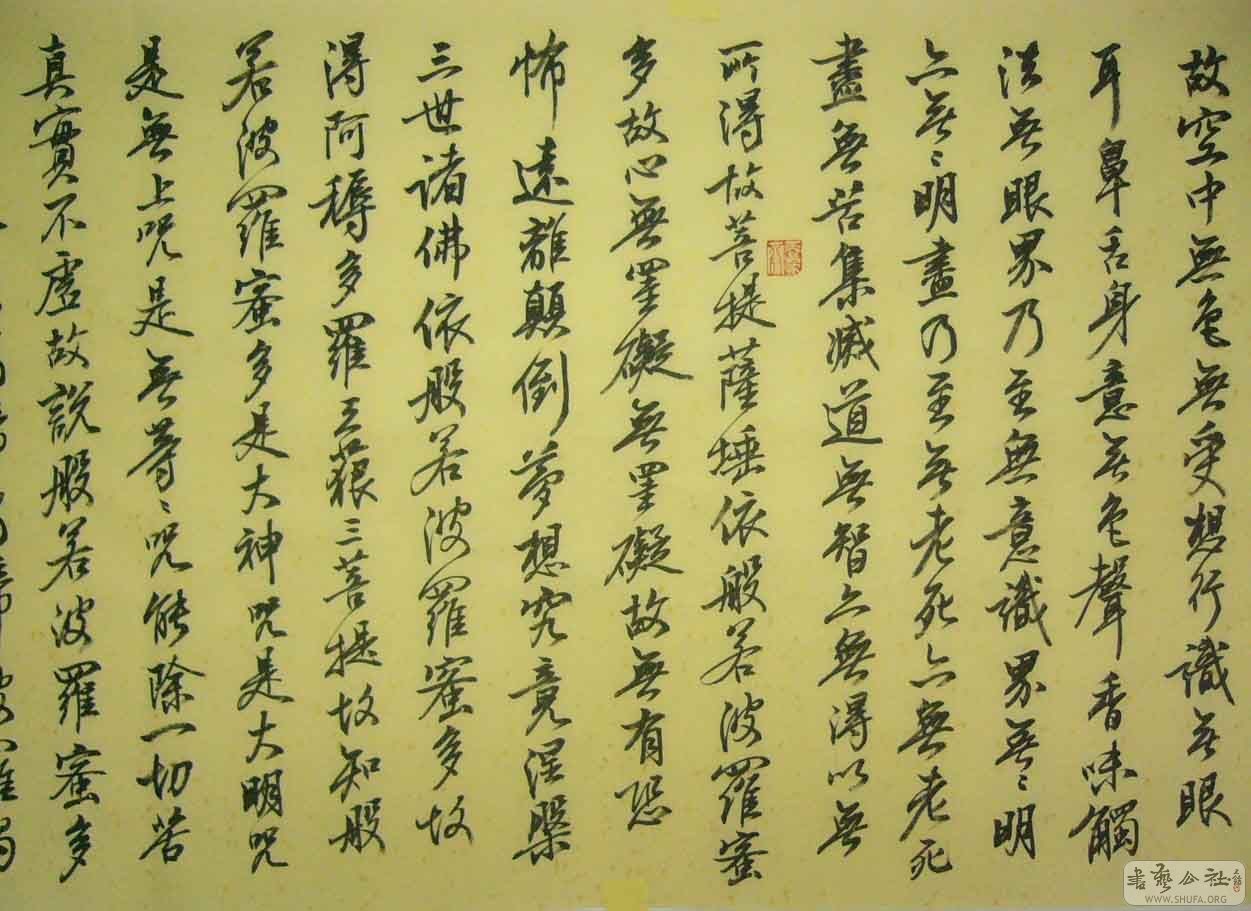 故空中無色無受想行識無眼
耳鼻舌身意無色聲香味觸
法無眼界乃至無意識界無〻明
亦無〻明盡乃至無老死亦無老死
盡無苦集滅道無智亦無得以無
所得故菩提薩埵依般若波羅蜜
多故心無罣礙無罣礙故無有恐
怖遠離顛倒夢想究竟涅槃
三世諸佛依般若波羅蜜多故
得阿耨多羅三藐三菩提故知般
若波羅蜜多是大神咒是大明咒
是無上咒是無等〻咒能除一切苦
真實不虛故說般若波羅蜜多
書藝公社
WWW.SHUFA.ORG